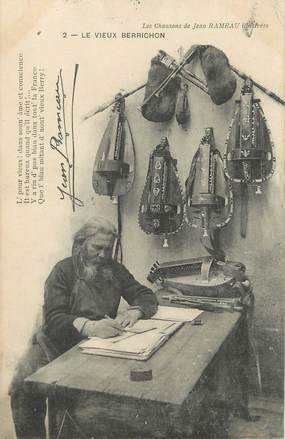 Les Chansons de Jean RAMEAU illustrées
2 - LE VIEUX BERRICHON
L' pourvoyeux! dans soun' âme et conscience
Il est hureux quand qu'il écrit!...
Y a rin d' pus biau dans tout' la France
Que l' biau mitan d' nout' vieux Berry!
Jean Rameau